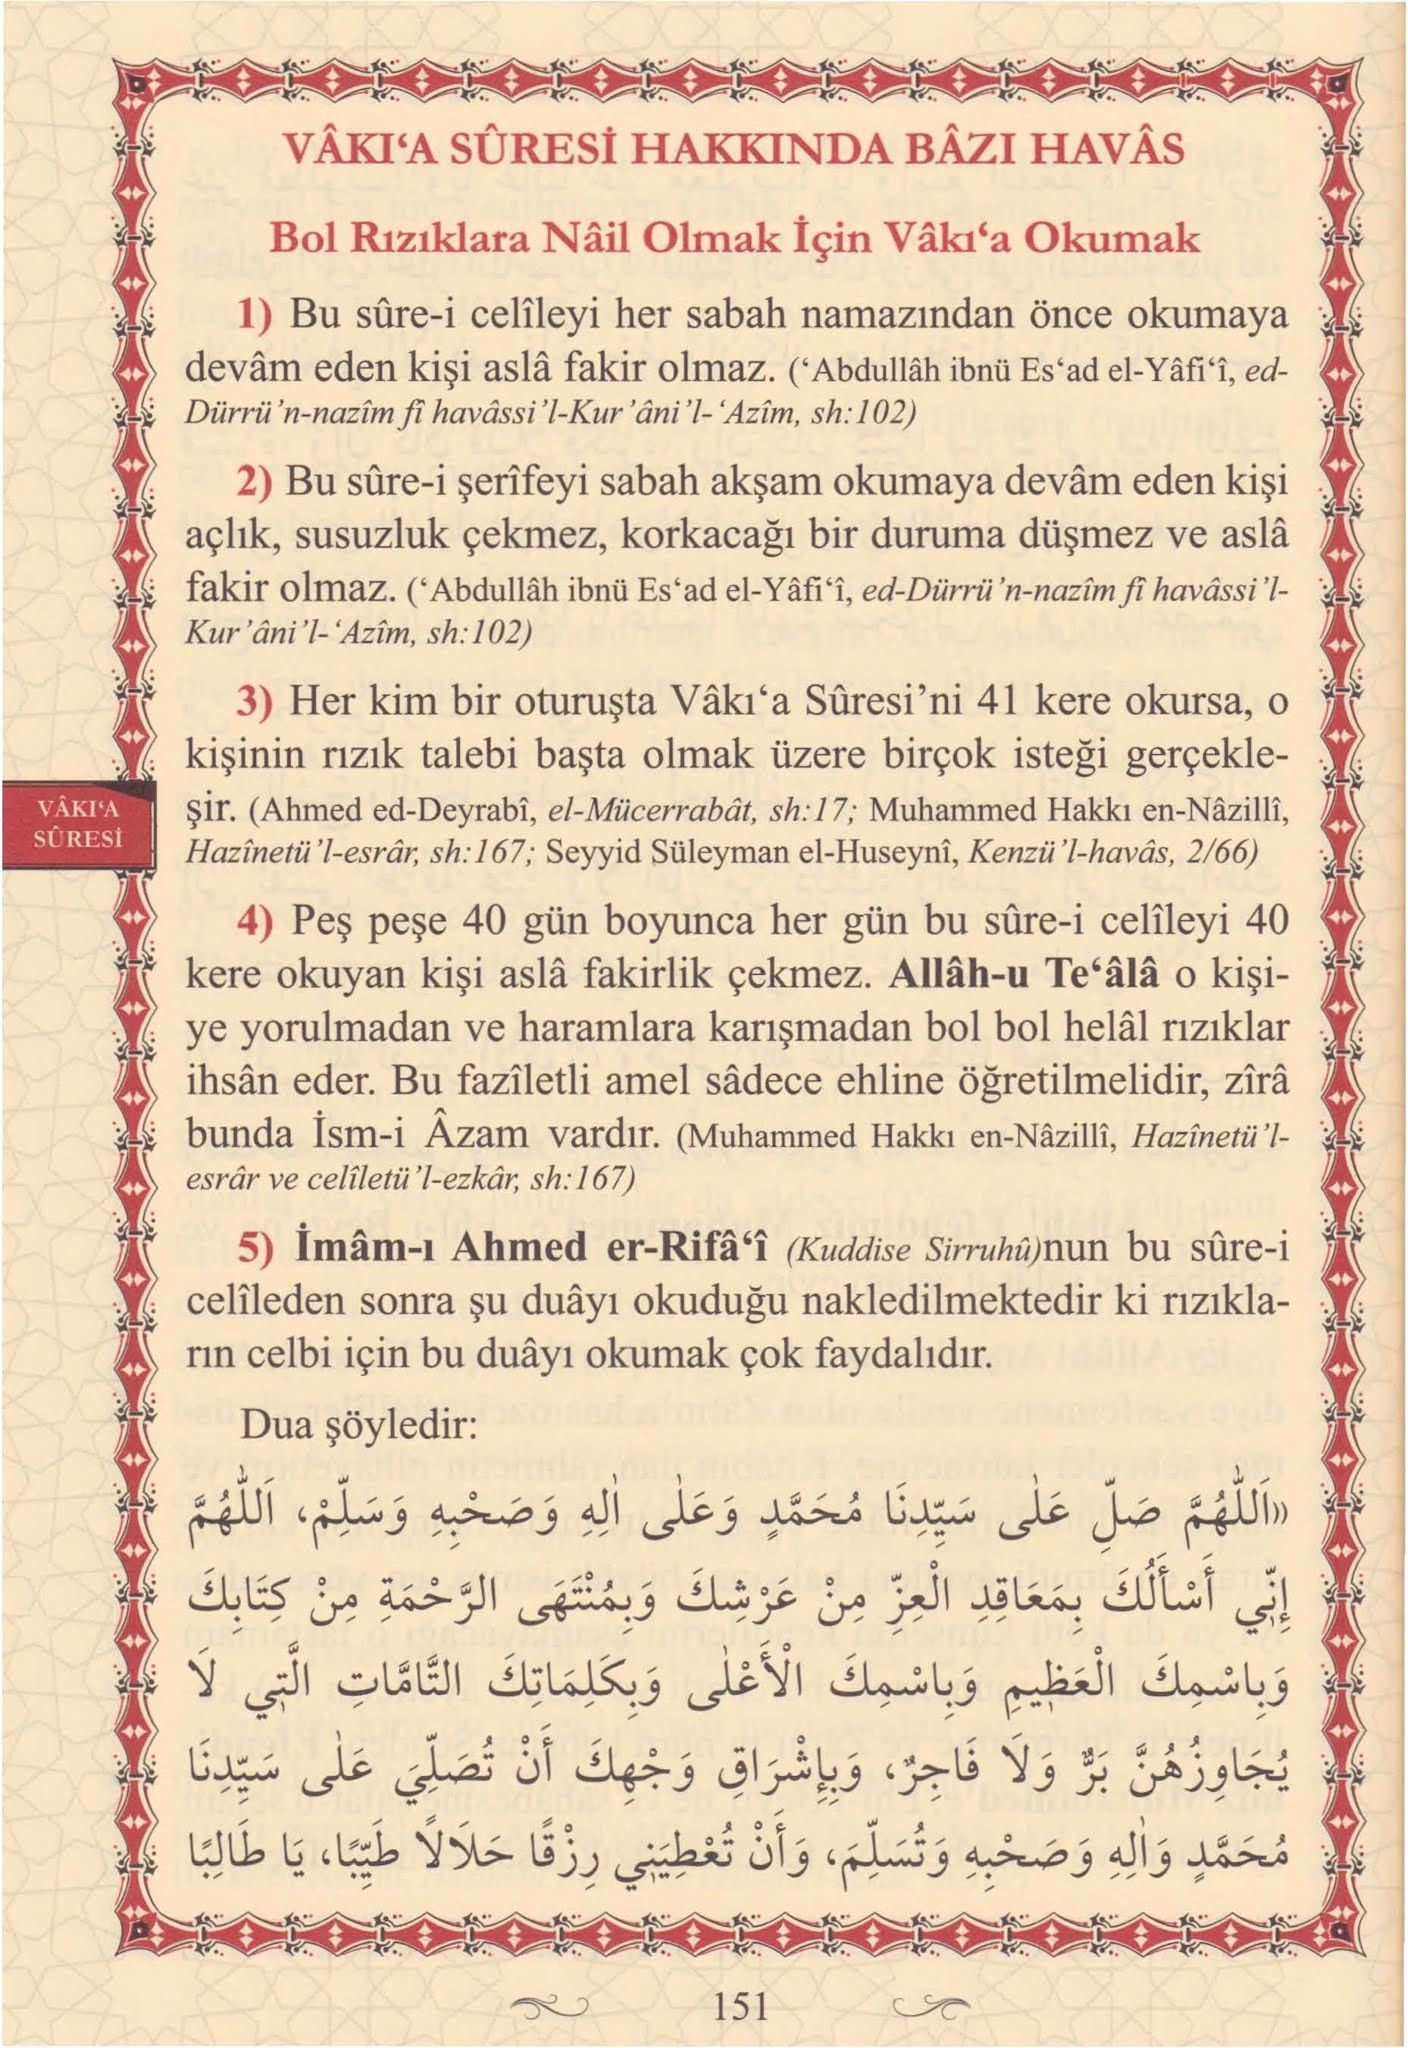 VÂKI‘A SÛRESİ HAKKINDA BÂZI HAVÂS
Bol Rızıklara Nâil Olmak İçin Vâkı‘a Okumak
1) Bu sûre-i celîleyi her sabah namazından önce okumaya
devâm eden kişi aslâ fakir olmaz. (‘Abdullâh ibnü Es‘ad el-Yâfi‘î, ed-
Dürrü’n-nazîm fî havâssi’l-Kur’âni’l-‘Azîm, sh:102)
2) Bu sûre-i şerîfeyi sabah akşam okumaya devâm eden kişi
açlık, susuzluk çekmez, korkacağı bir duruma düşmez ve aslâ
fakir olmaz. (‘Abdullâh ibnü Es‘ad el-Yâfi‘î, ed-Dürrü’n-nazîm fî havâssi’l-
Kur’âni’l-‘Azîm, sh:102)
3) Her kim bir oturuşta Vâkı‘a Sûresi’ni 41 kere okursa, o
kişinin rızık talebi başta olmak üzere birçok isteği gerçekle-
şir. (Ahmed ed-Deyrabî, el-Mücerrabât, sh:17; Muhammed Hakkı en-Nâzillî,
Hazînetü’l-esrâr, sh:167; Seyyid Süleyman el-Huseynî, Kenzü’l-havâs, 2/66)
VÂKI‘A
SÛRESİ
4) Peş peşe 40 gün boyunca her gün bu sûre-i celîleyi 40
kere okuyan kişi aslâ fakirlik çekmez. Allâh-u Te‘âlâ o kişi-
ye yorulmadan ve haramlara karışmadan bol bol helâl rızıklar
ihsân eder. Bu fazîletli amel sâdece ehline öğretilmelidir, zîrâ
bunda İsm-i Âzam vardır. (Muhammed Hakkı en-Nâzillî, Hazînetü’l-
esrâr ve celîletü’l-ezkâr, sh:167)
5) İmâm-ı Ahmed er-Rifâ‘î (Kuddise Sirruhû)nun bu sûre-i
celîleden sonra şu duâyı okuduğu nakledilmektedir ki rızıkla-
rın celbi için bu duâyı okumak çok faydalıdır.
Dua şöyledir:
«اَللّٰهُمَّ صَلِّ عَلٰى سَيِّدِنَا مُحَمَّدٍ وَعَلٰى اٰلِهِ وَصَحْبِهِ وَسَلِّمْ، اَللّٰهُمَّ
إِنِّي أَسْأَلُكَ بِمَعَاقِدِ الْعِزِّ مِنْ عَرْشِكَ وَبِمُنْتَهَى الرَّحْمَةِ مِنْ كِتَابِكَ
وَبِاسْمِكَ الْعَظِيمِ وَبِاسْمِكَ الْأَعْلٰى وَبِكَلِمَاتِكَ التَّامَّاتِ الَّتِي لَا
يُجَاوِزُهُنَّ بَرٌّ وَلَا فَاجِرٌ، وَبِإِشْرَاقِ وَجْهِكَ أَنْ تُصَلِّيَ عَلٰى سَيِّدِنَا
مُحَمَّدٍ وَاٰلِهِ وَصَحْبِهِ وَتُسَلِّمَ، وَأَنْ تُعْطِيَنِي رِزْقًا حَلَالًا طَيِّبًا، يَا طَالِبًا
151